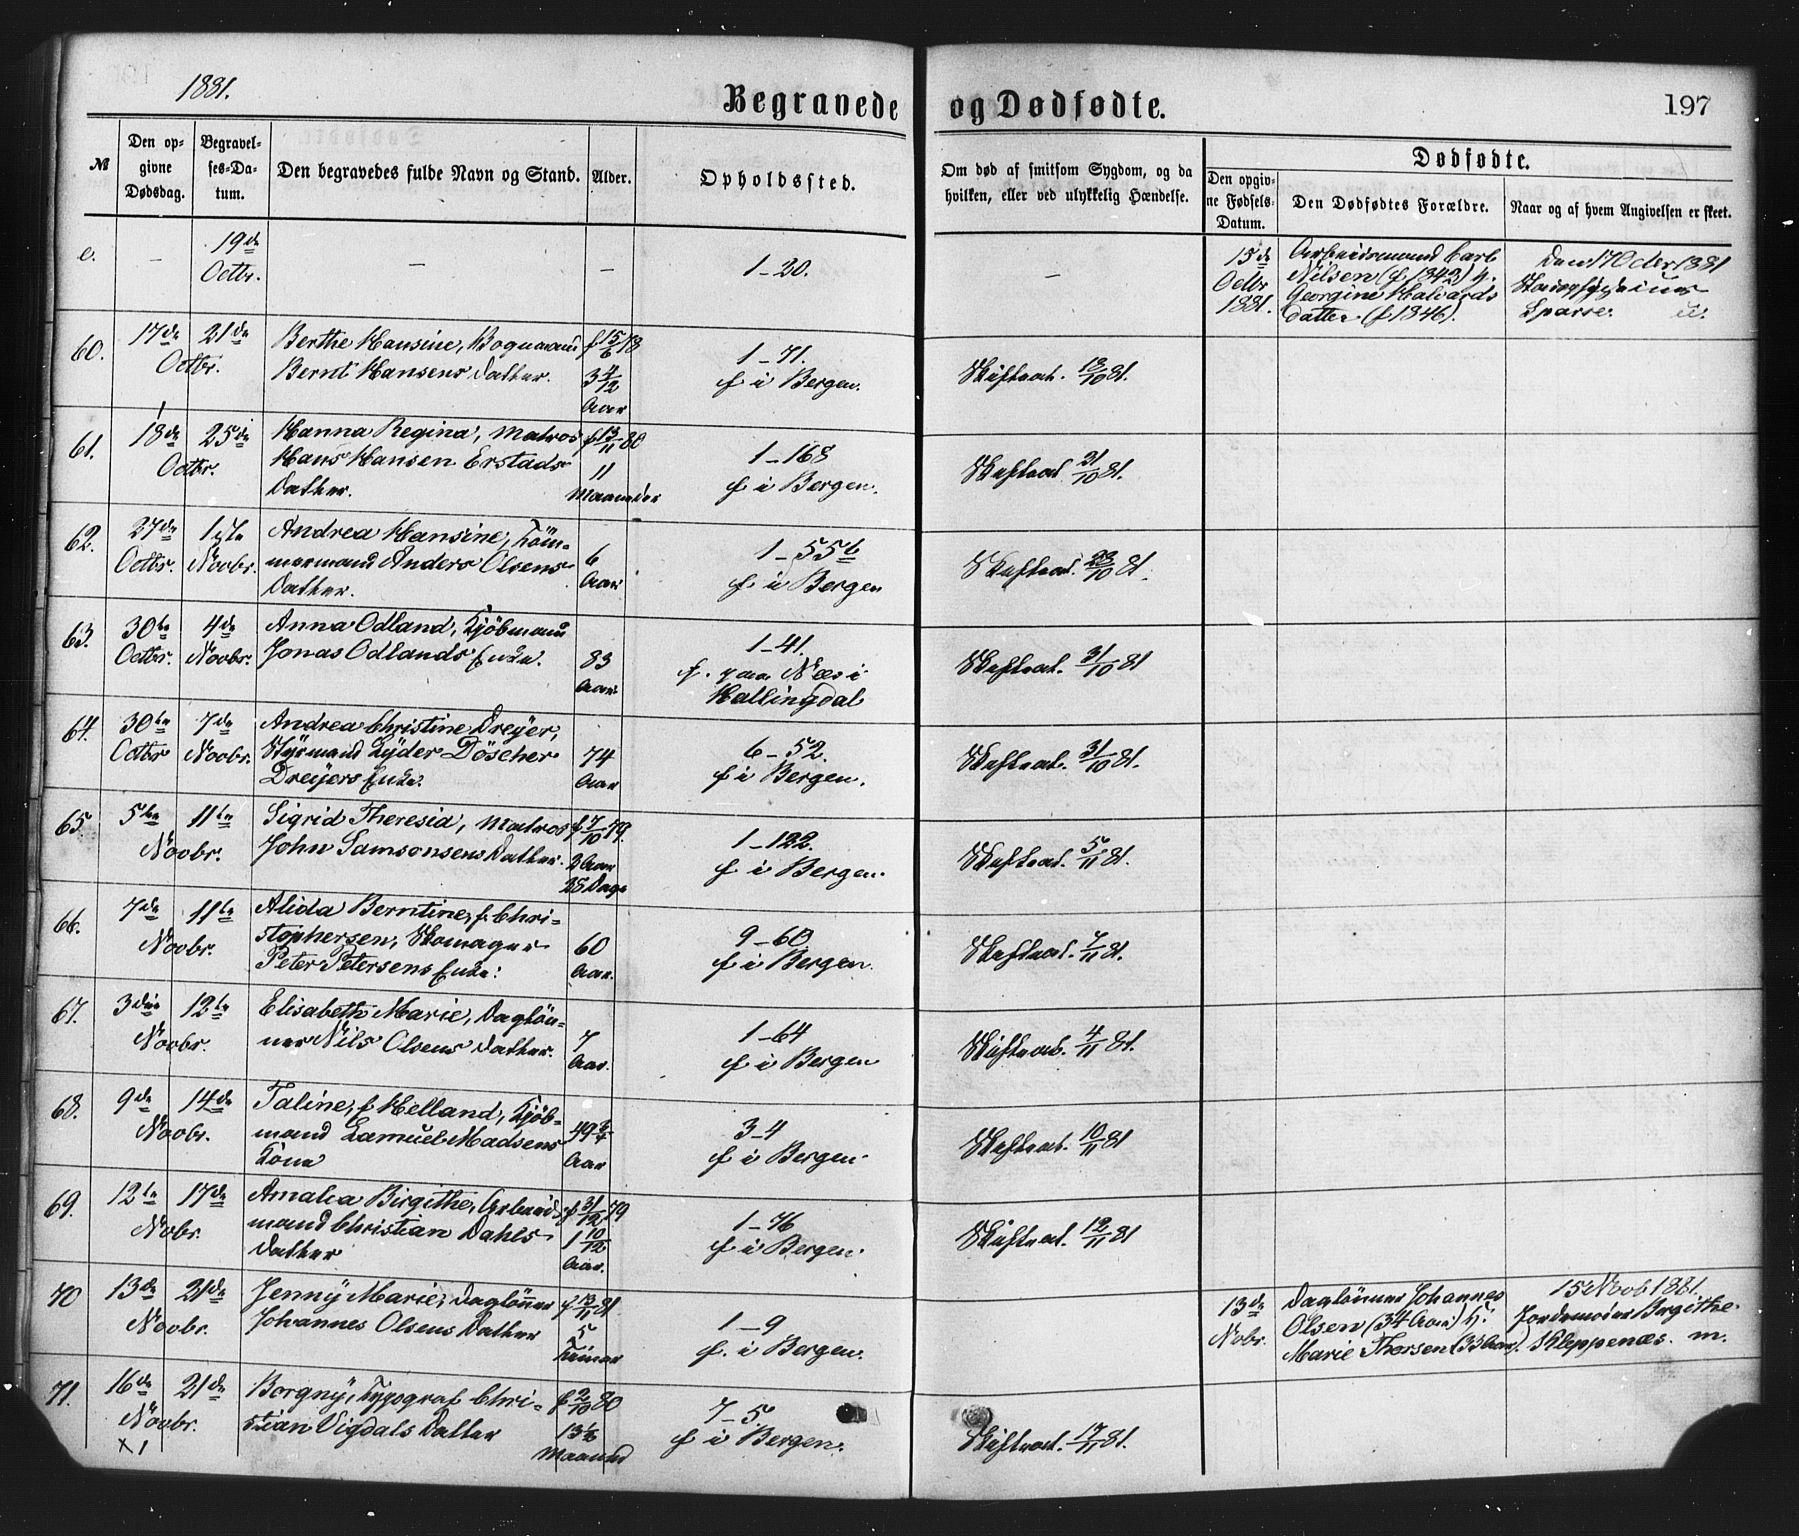 1881.
Begravede og Dødfødte.
197
№
Den opgivne Dødsdag.
Begravelses-Datum.
Den begravedes fulde Navn og Stand.
Alder.
Opholdssted.
Om død af smitsom Sygdom, og da hvilken, eller ved ulykkelig Hændelse.
Dødfødte.
Den opgivne Fødsels-Datum.
Den Dødfødtes Forældre.
Naar og af hvem Angivelsen er skeet.
e. – 19de – – 1–20. – 15de Arbeidsmand Carl Den 17 Octbr 1881
Octbr. Octbr Nilsen (f 1842) &
1881. Georgine Halvards
datter (f 1846). Sparre.
60. 17de 21de Berthe Hansine, Bogmand f 15/6 78 1–71.
Octbr. Bernt Hansens Datter. 3 4/12 Aar f i Bergen. Skifteat. 13/10 81.
61. 18de 25de Hanna Regina, Matros f 13/11 80 1–168
Octbr. Hans Hansen Erstads 11 f i Bergen. Skifteat 21/10 81.
Datter. Maaneder
62. 27de 1ste Andrea Hansine, Töm- 1–55b
Octbr. Novbr. mermand Anders Olsens 6 f i Bergen Skifteat. 28/10 81.
Datter. Aar
63. 30te 4de Anna Odland, Kjöbmand 1–41.
Octbr. Novbr. Jonas Odlands Enke. 83 f. paa Næs i Skifteat. 31/10 81
Aar Hallingdal
64. 30te 7de Andrea Christine Dreÿer,
Octbr Novbr. Stÿrmand Lÿder Döscher 74 6–52. Skifteat. 31/10 81.
Dreÿers Enke. Aar f i Bergen.
65. 5te 11te Sigrid Theresia, Matros f 7/10 79. 1–122.
Novbr. John Samsonsens Datter. 2 Aar f i Bergen. Skifteat. 5/11 81.
25 Dage
66. 7de 11te Alida Berntine, f Chri-
Novbr. stophersen, Skomager 60 9–60 Skifteat. 7/11 81.
Peter Petersens Enke. Aar. f i Bergen.
67. 3die 12te Elisabeth Marie, Daglön-
Novbr. ner Nils Olsens Datter. 7 1–64 Skifteat. 4/11 81.
Aar. f i Bergen
68. 9de 14de Taline, f Helland, Kjöb-
Novbr. mand Lamuel Madsens 49 3/4 3–4 Skifteat. 10/11 81
Kone Aar f i Bergen.
69. 12te 17de Amalia Birgithe, Arbeids- f 31/12 79
Novbr. mand Christian Dahls 1 10/12 1–76 Skifteat. 12/11 81
Datter Aar. f i Bergen.
70 13de 21de Jennÿ Marie, Daglönner f 13/11 81 13de Daglönner Johannes 15 Novb 1881.
Novbr. Johannes Olsens Datter 5 1–9 Nobr. Olsen (34 Aar) & Jordemoder Birgithe
Timer f. i Bergen. Marie Thorsen (33 Aar). Kleppenæs. m.
71. 16de 21de Borgnÿ, Typograf Chri- f 2/10 80 7–5.
Novbr. stian Vigdals Datter 13 1/2 f i Bergen. Skifteat. 17/11 81.
×1 Maaned